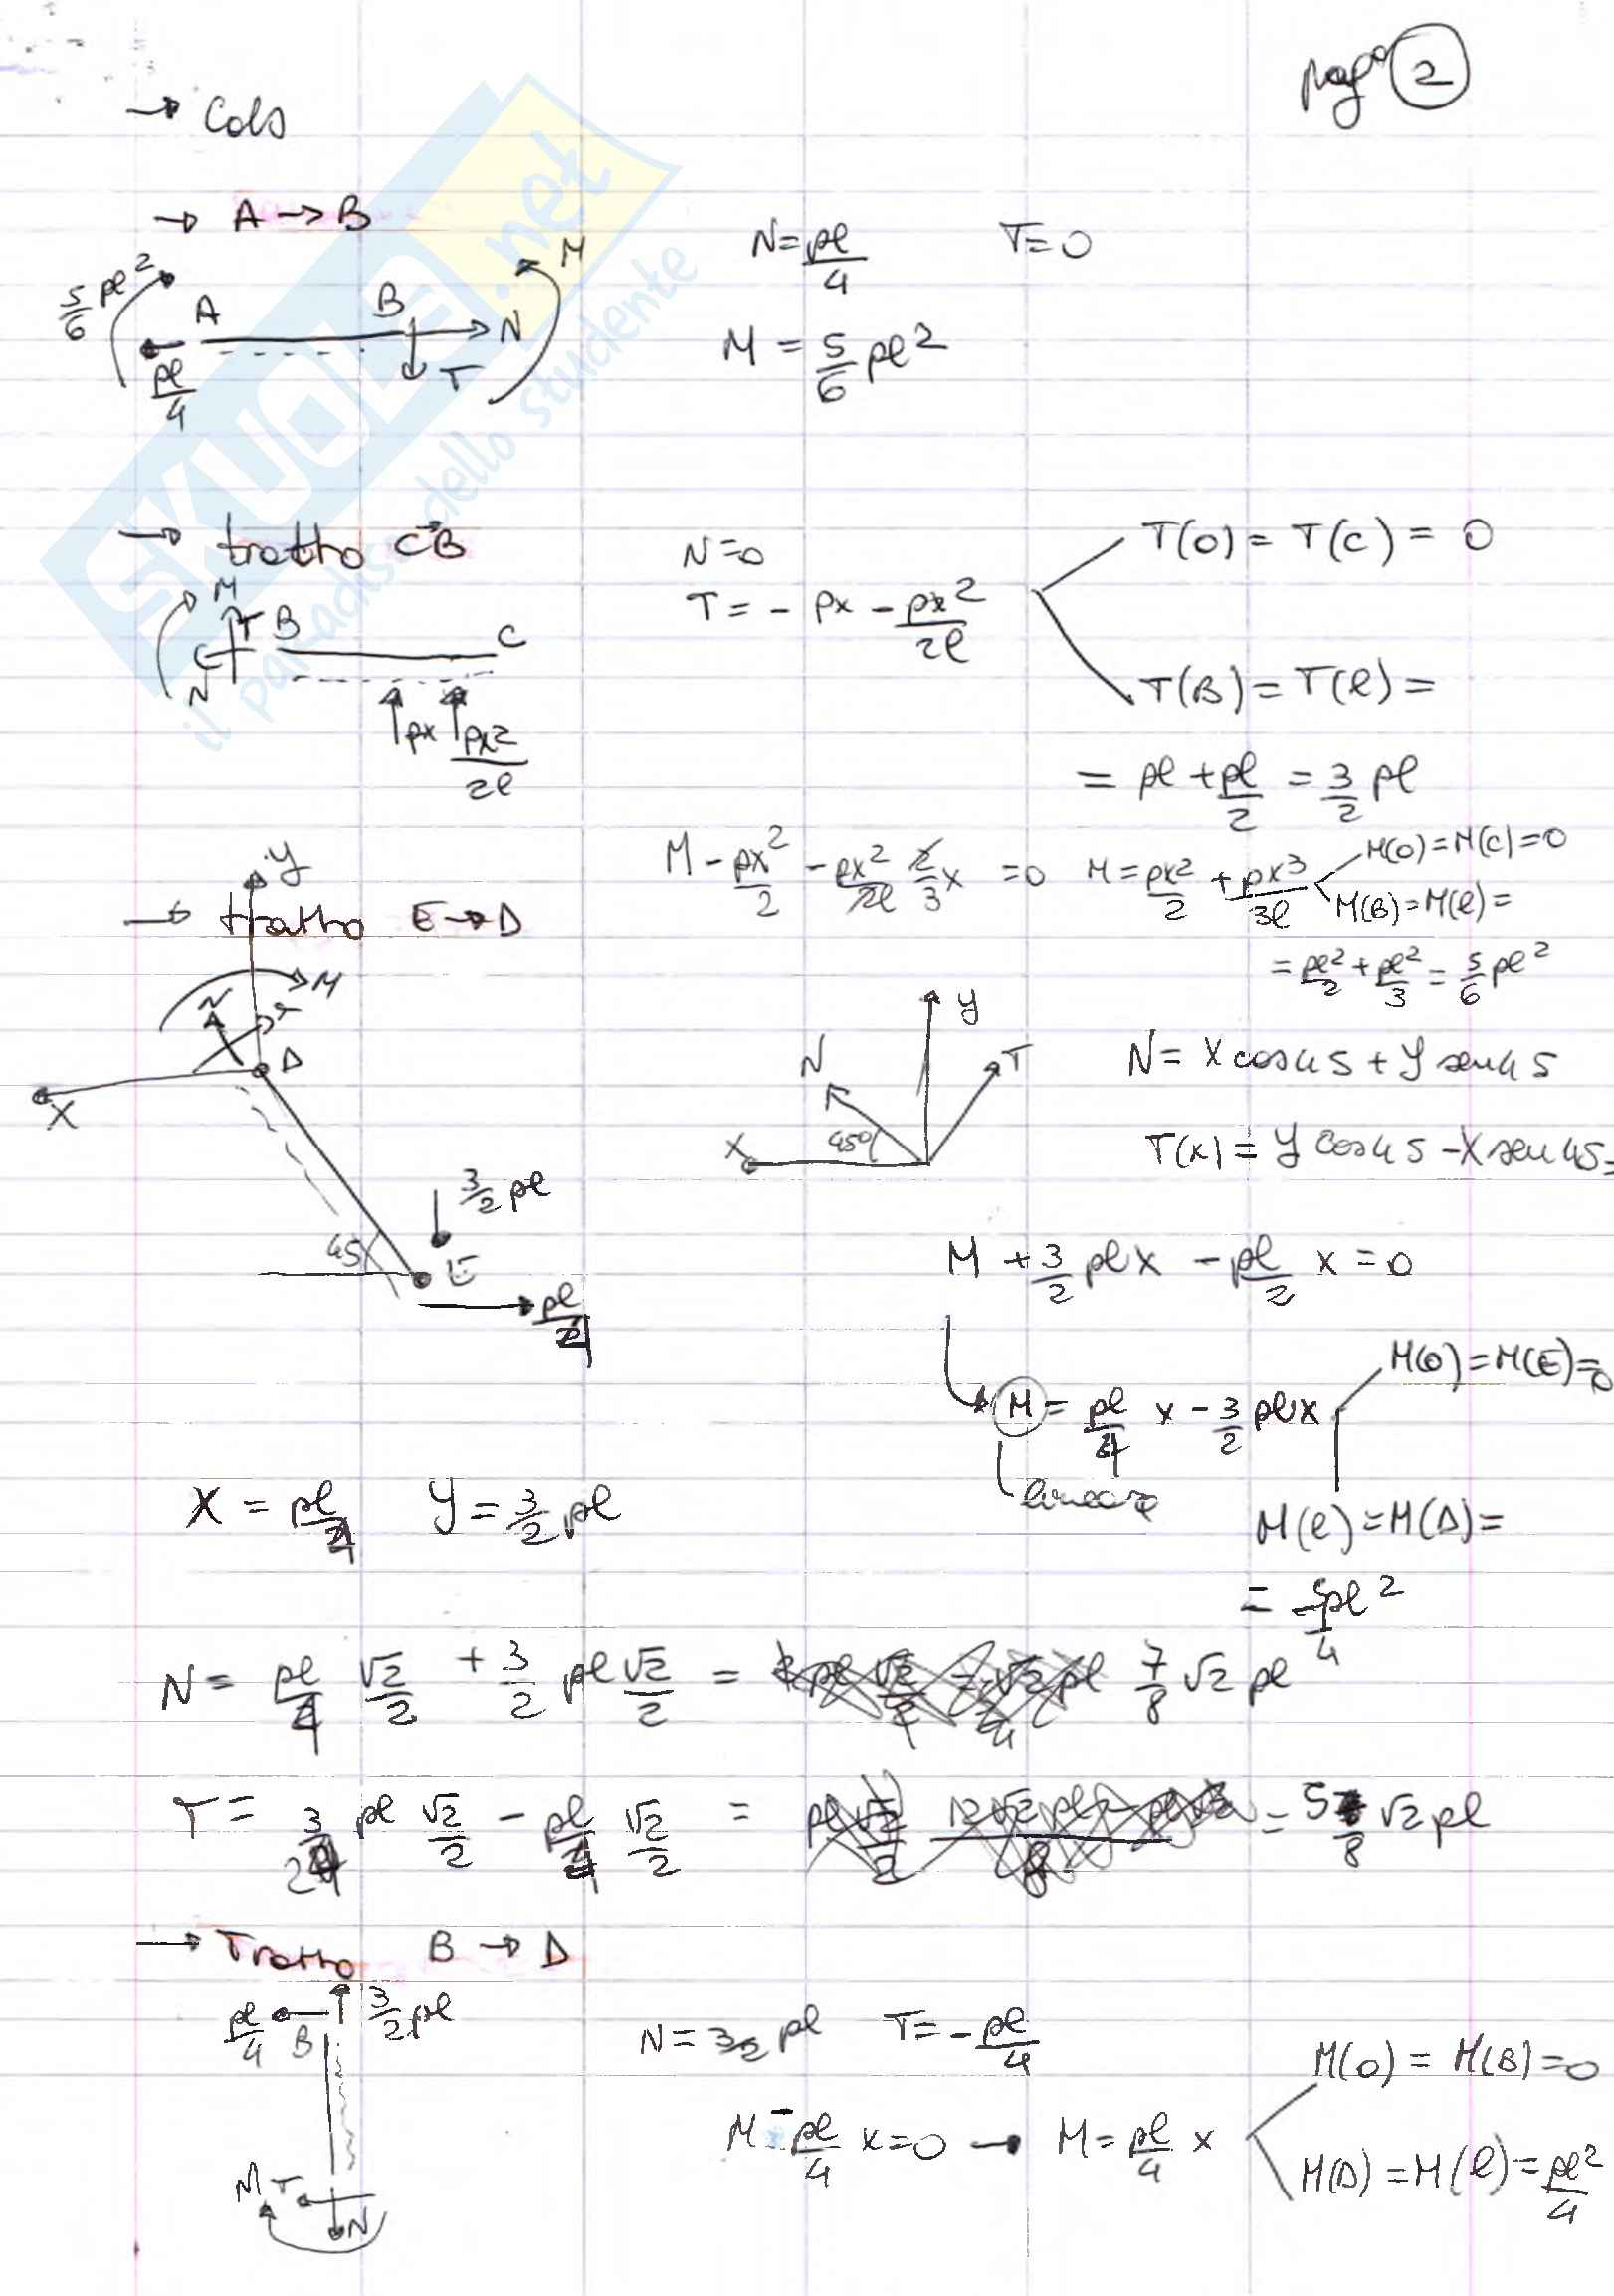 pag° 2
→ Cds
→ A → B
5/6 pl²
A
B
N
M
T
pl/4
N = pl/4 T = 0
M = 5/6 pl²
→ tratto CB
M
T
B
C
N
px
px²/2l
N = 0
T = - px - px²/2l
T(0) = T(C) = 0
T(B) = T(l) =
= pl + pl/2 = 3/2 pl
M - px²/2 - px²/2l 2/3 x = 0 M = px²/2 + px³/3l
M(0) = M(C) = 0
M(B) = M(l) =
= pl²/2 + pl²/3 = 5/6 pl²
→ tratto E → D
y
M
N
T
D
X
45
E
3/2 pl
pl/4
y
N
T
X
45°
N = X cos 45 + Y sen 45
T(x) = Y cos 45 - X sen 45 =
M + 3/2 pl x - pl/2 x = 0
M = pl/4 x - 3/2 pl x
lineare
M(0) = M(E) = 0
M(l) = M(D) =
= -5/4 pl²
X = pl/4 Y = 3/2 pl
N = pl/4 √2/2 + 3/2 pl √2/2 = 7/8 √2 pl
T = 3/2 pl √2/2 - pl/4 √2/2 = = 5/8 √2 pl
→ Tratto B → D
pl/4
B
3/2 pl
M
T
N
N = 3/2 pl T = - pl/4
M - pl/4 x = 0 → M = pl/4 x
M(0) = M(B) = 0
M(D) = M(l) = pl²/4
SKUOLA.net
il paradiso dello studente